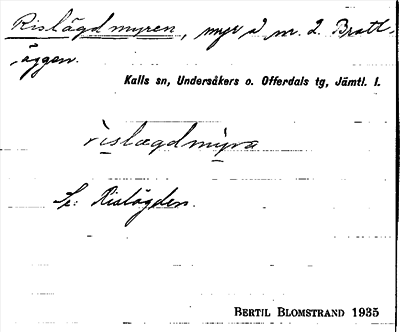 Rislägdmyren, myr å nr. 2. Bratt-
äggen.
Kalls sn, Undersåkers o. Offerdals tg, Jämtl. l.
rislægdmyra
Se: Rislägden.
BERTIL BLOMSTRAND 1935